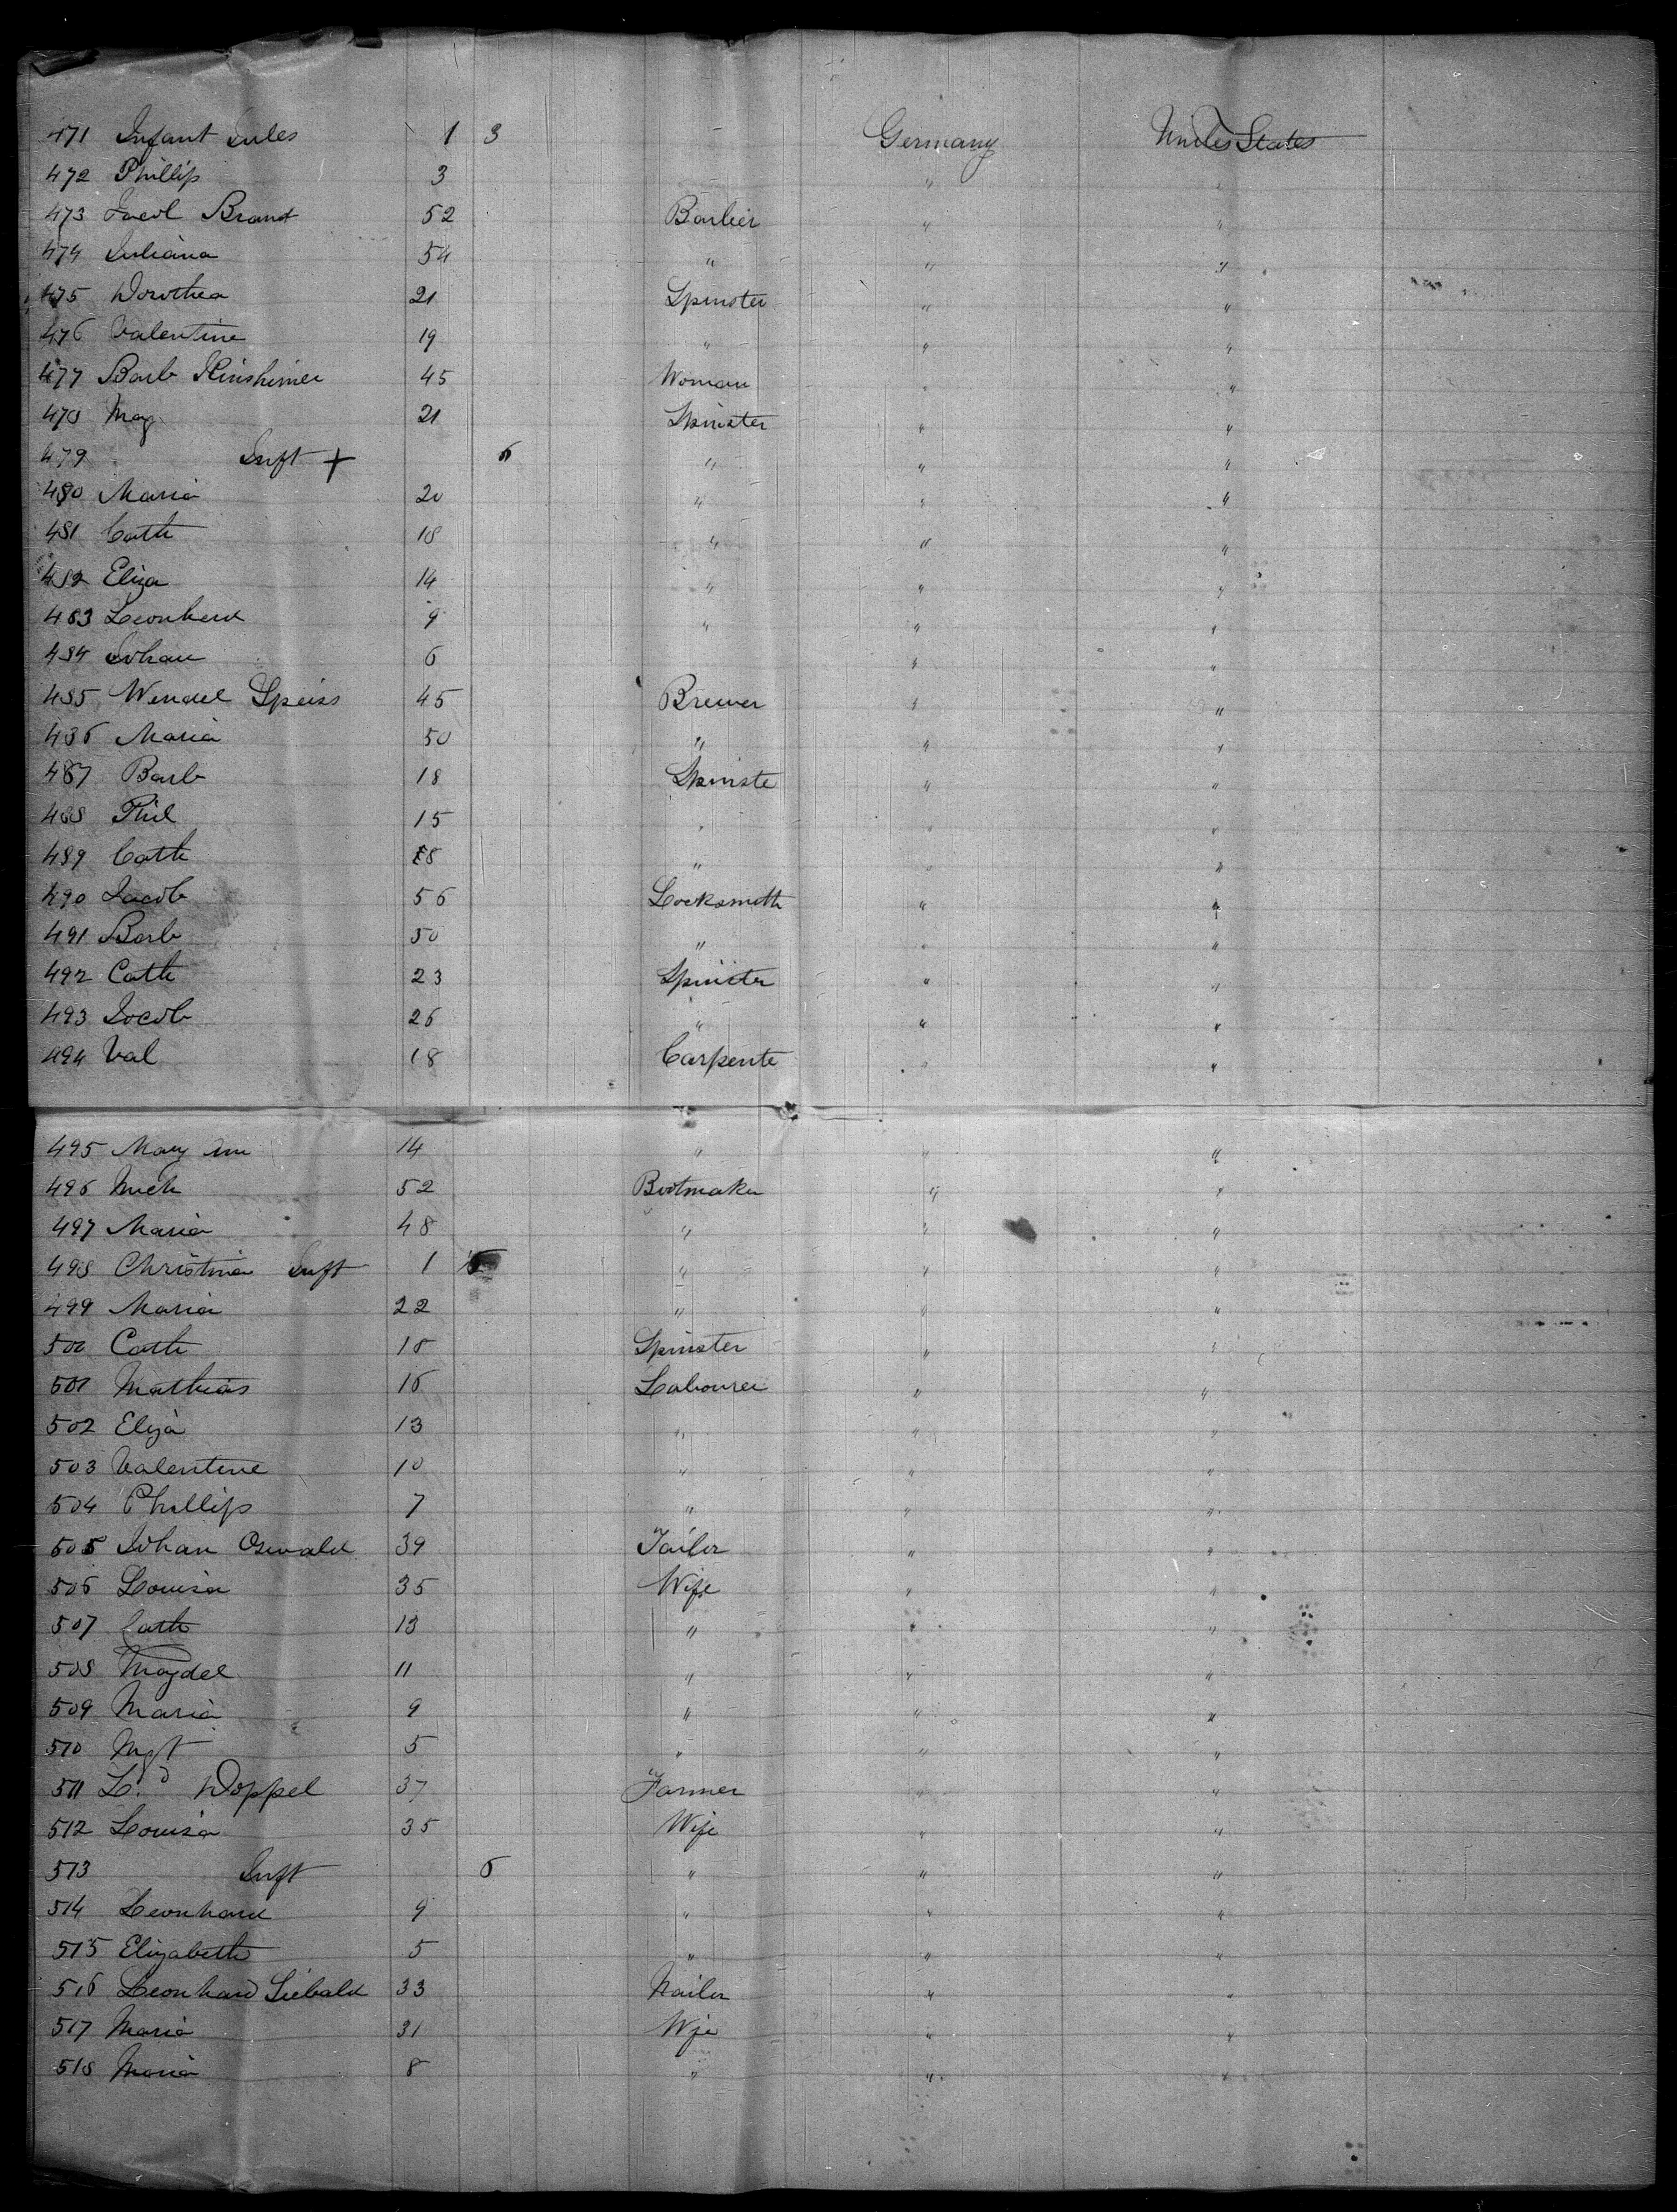 471 Infant Jules 1 3 - Germany United States
472 Phillip 3 - " "
473 Jacob Brand 52 Barbier " "
474 Juliana 54 " " "
475 Dorothea 21 Spinster " "
476 Valentine 19 " " "
477 Barb 45 Woman " "
478 Mag 21 Spinster " "
479 Inft + 6 " " "
480 Maria 20 " " "
481 Cath 18 " " "
482 Eliza 14 " " "
483 Leonherd 9 " " "
484 Johan 6 " "
485 Wendel Speiss 45 Brewer " "
486 Maria 50 " " "
487 Barb 18 Spinste " "
488 Phil 15 " " "
489 Cath 8 " " "
490 Jacob 56 Locksmith " "
491 Barb 50 " " "
492 Cath 23 Spinster " "
493 Jacob 26 " " "
494 Val 18 Carpente " "
495 Mary Ann 14 " " "
496 Mich 52 Bootmaker " "
497 Maria 48 " " "
498 Christina Inft 1 " " "
499 Maria 22 " " "
500 Cath 18 Spinster " "
501 Mathias 16 Labourer " "
502 Eliza 13 " " "
503 Valentine 10 " " "
504 Phillip 7 " " "
505 Johan Oswald 39 Tailor " "
506 Louisa 35 Wife " "
507 Cath 13 " " "
508 Magdel 11 " " "
509 Maria 9 " " "
510 Mgt 5 " " "
511 Ld Doppel 37 Farmer " "
512 Louisa 35 Wife " "
513 Inft 6 " " "
514 Leonhard 9 " " "
515 Elizabeth 5 " " "
516 Leonhard Siebald 33 Nailor " "
517 Maria 31 Wife " "
518 Maria 8 " " "